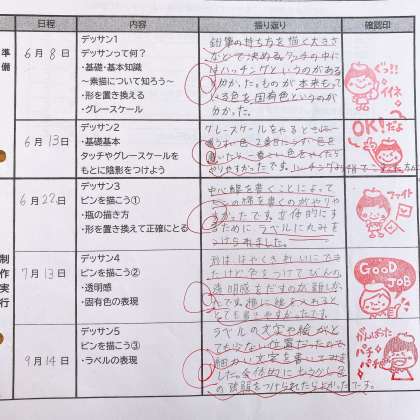 日程 内容 振り返り 確認印
準備
6月8日
デッサン1
デッサンって何?
・基礎・基本知識
～素描について知ろう～
・形を置き換える
・グレースケール
鉛筆の持ち方を描く大きさ
などで決める。タッチの中に
はハッチングというのがある
が分かった。ものが本来もって
いる色を固有色というのが
分かった。
ぐっ!!
イイネ
6月13日
デッサン2
・基礎基本
タッチやグレースケールを
もとに陰影をつけよう
グレースケールをみると
やりやすかったです。
OK!だよ
6月22日
デッサン3
ビンを描こう①
・瓶の描き方
・形を置き換えて正確にとる
中心線を書くことによって
ビンの線を書くのがやりや
すかったです。立体的にす
るために、ラベルに丸みを
つけられました。
ファイト
制作実行
7月13日
デッサン4
ビンを描こう②
・透明感
・固有色の表現
形ははやくきれいにで
きたけど色をつけてびんの
透明感をだすのが難しか
ったです。
とても書きやすかったです。
GOOD JOB
9月14日
デッサン5
ビンを描こう③
・ラベルの表現
ラベルの文字や絵がと
ても少ない位置だったので
細かい文字を書いてみま
した。全体的にもう少し色
の強弱をつけられたらよかったです。
がんばった
パチ
パチ